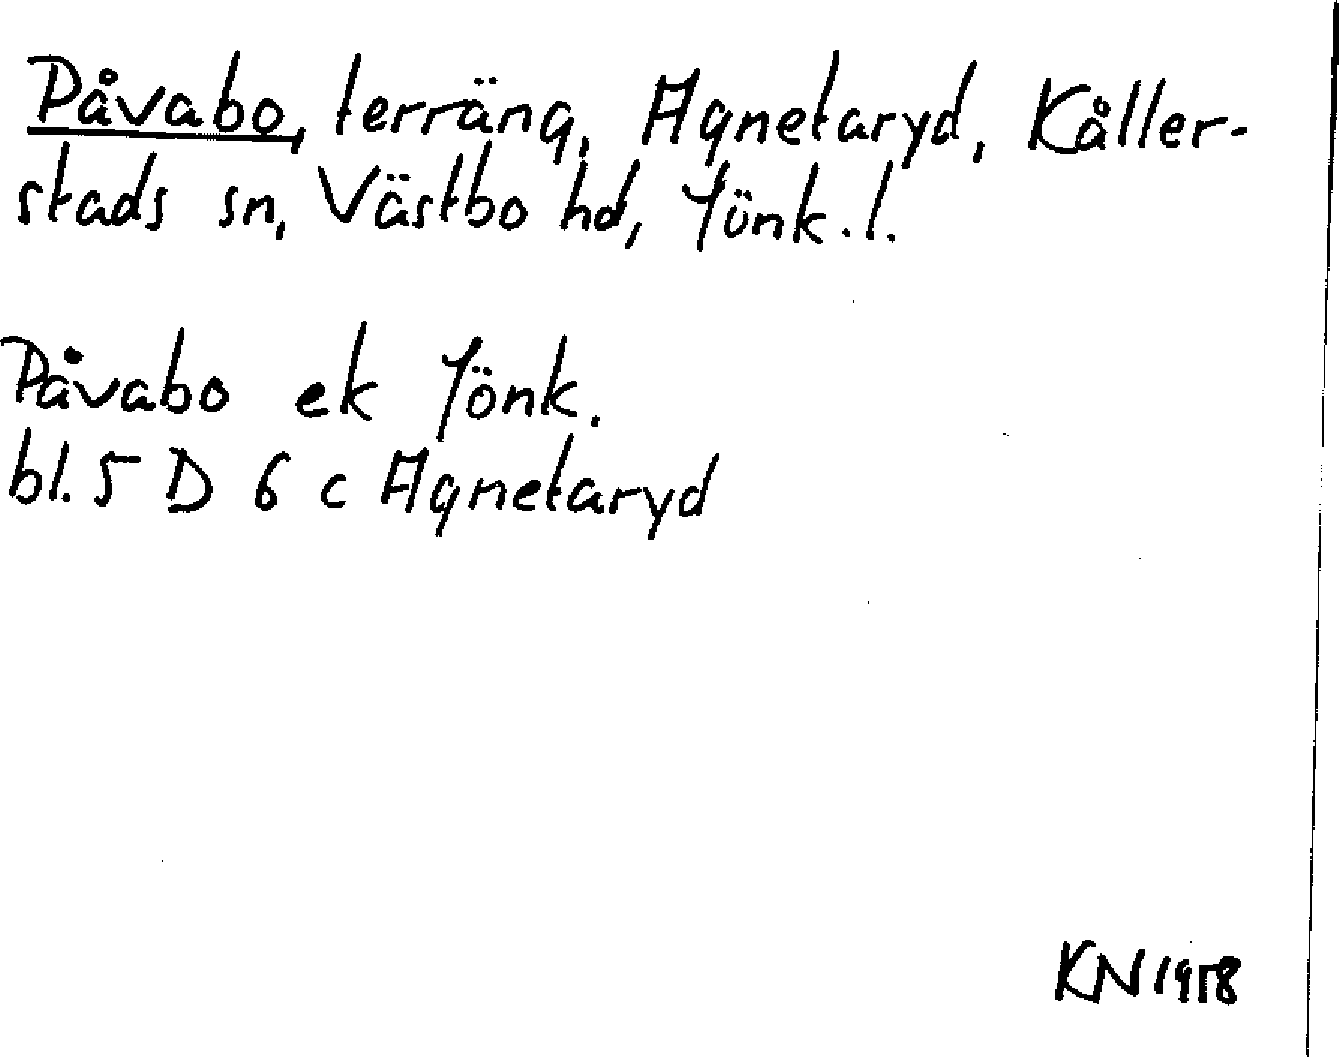 Påvabo, terräng, Agnetaryd, Kåller-
stads sn, Västbo hd, Jönk.l.
Påvabo ek Jönk.
bl. 5 D 6 c Agnetaryd
KN 1958